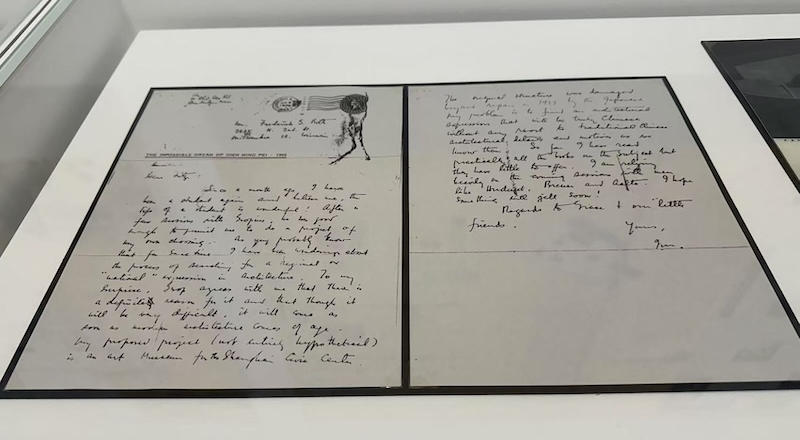 Mr. Frederick S. Roth
THE IMPOSSIBLE DREAM OF IEOH MING PEI - 1946
Dear Fritz,
Since a month ago, I have
been a student again and believe me, the
life of a student is wonderful. After a
few sessions with Gropius, he was good
enough to permit me to do a project of
my own choosing. As you probably know
that for some time I have been wondering about
the process of searching for a regional or
"national" expression in architecture. To my
surprise, Grop agrees with me that there is
a definite reason for it and that though it
will be very difficult, it will come as
soon as modern architecture comes of age.
My proposed project (not entirely hypothetical)
is an Art Museum for the Shanghai Civic Center.
The original structure was damaged
beyond repair in by the Japanese
My problem is to find an architectural
expression that will be truly Chinese
without any resort to traditional Chinese
architectural details and motives we
know them. So far I have read
practically all the books on the subject but
they have little to offer. I am relying
heavily on the coming sessions with men
like Hudnut, Breuer and Aalto. I hope
something will gell soon!
Regards to Grace & our little
friends.
Yours,